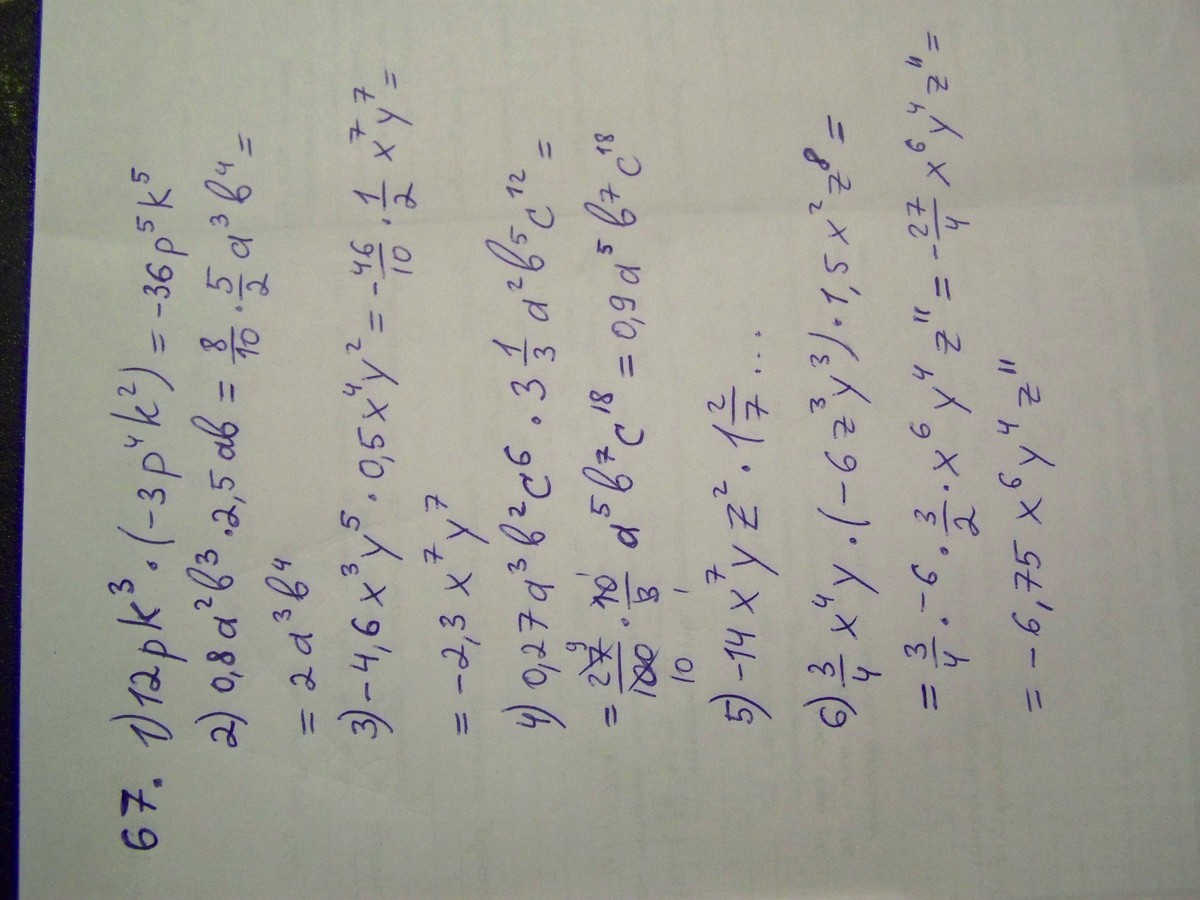 67. 1) 12pk³ · (-3p⁴k²) = -36p⁵k⁵
2) 0,8a²b³ · 2,5ab = 8/10 · 5/2 a³b⁴ =
= 2a³b⁴
3) -4,6x³y⁵ · 0,5x⁴y² = -46/10 · 1/2 x⁷y⁷ =
= -2,3x⁷y⁷
4) 0,27a³b²c⁶ · 3 1/3 a²b⁵c¹² =
= 27/100 · 10/3 a⁵b⁷c¹⁸ = 0,9a⁵b⁷c¹⁸
5) -14x⁷yz² · 1 2/7 ...
6) 3/4 x⁴y · (-6z³y³) · 1,5x²z⁸ =
= 3/4 · -6 · 3/2 · x⁶y⁴z¹¹ = -27/4 x⁶y⁴z¹¹ =
= -6,75x⁶y⁴z¹¹